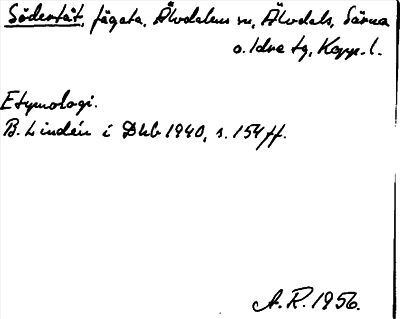 Södertåt, fägata, Älvdalens sn, Älvdals, Särna
o. Idre tg, Kopp. l.
Etymologi.
B. Lindén i Dhb 1940, s. 154 ff.
A.R. 1956.